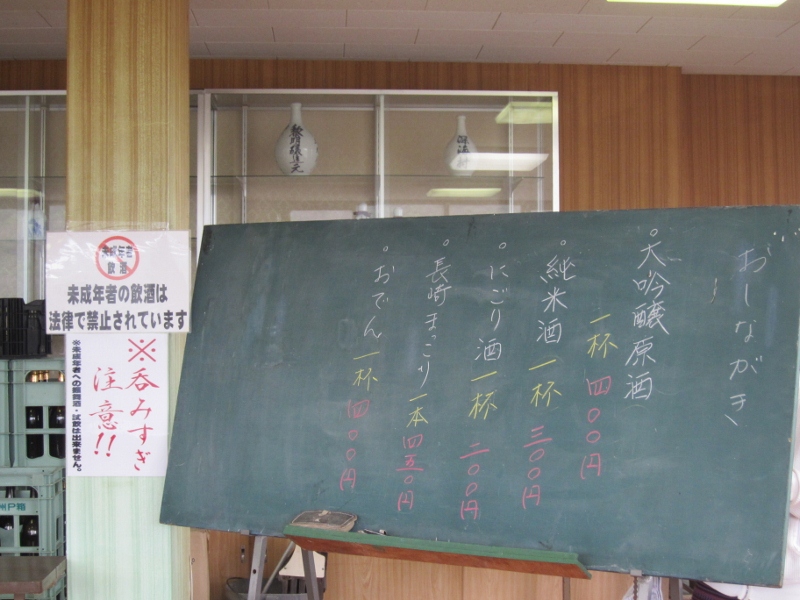 おしながき
大吟醸原酒
一杯 四〇〇円
純米酒 一杯 三〇〇円
にごり酒 一杯 二〇〇円
長崎まっこり 一本 四五〇円
おでん 一杯 四〇〇円
未成年者
飲酒
未成年者の飲酒は
法律で禁止されています
※呑みすぎ
注意!!